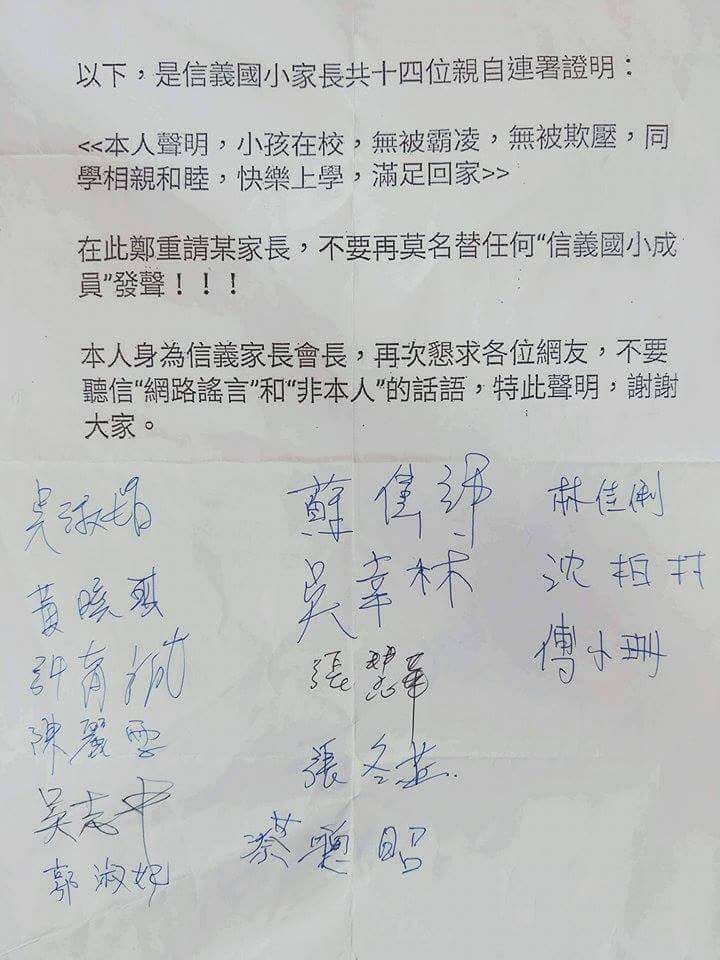 以下，是信義國小家長共十四位親自連署證明：
<<本人聲明，小孩在校，無被霸凌，無被欺壓，同
學相親和睦，快樂上學，滿足回家>>
在此鄭重請某家長，不要再莫名替任何“信義國小成
員”發聲！！！
本人身為信義家長會長，再次懇求各位網友，不要
聽信“網路謠言”和“非本人”的話語，特此聲明，謝謝
大家。
吳淑娟
黃曉琪
許育誠
陳麗雲
吳志中
郭淑妮
蘇佳
吳幸林
張慧萍
張冬燕
蔡聰昭
林佳俐
沈柏村
傅小珊